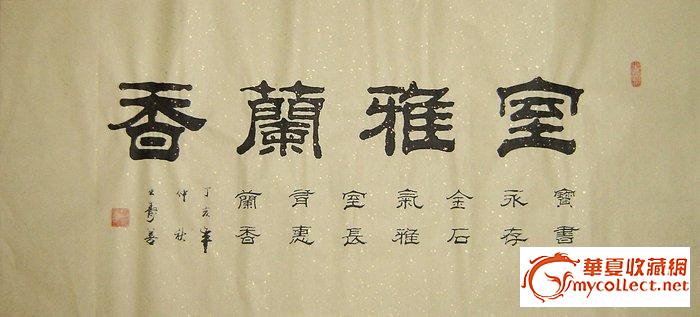 室雅蘭香
寶書
永存
金石
氣雅
室長
有惠
蘭香
丁亥年
仲秋
華夏收藏網
mycollect.net